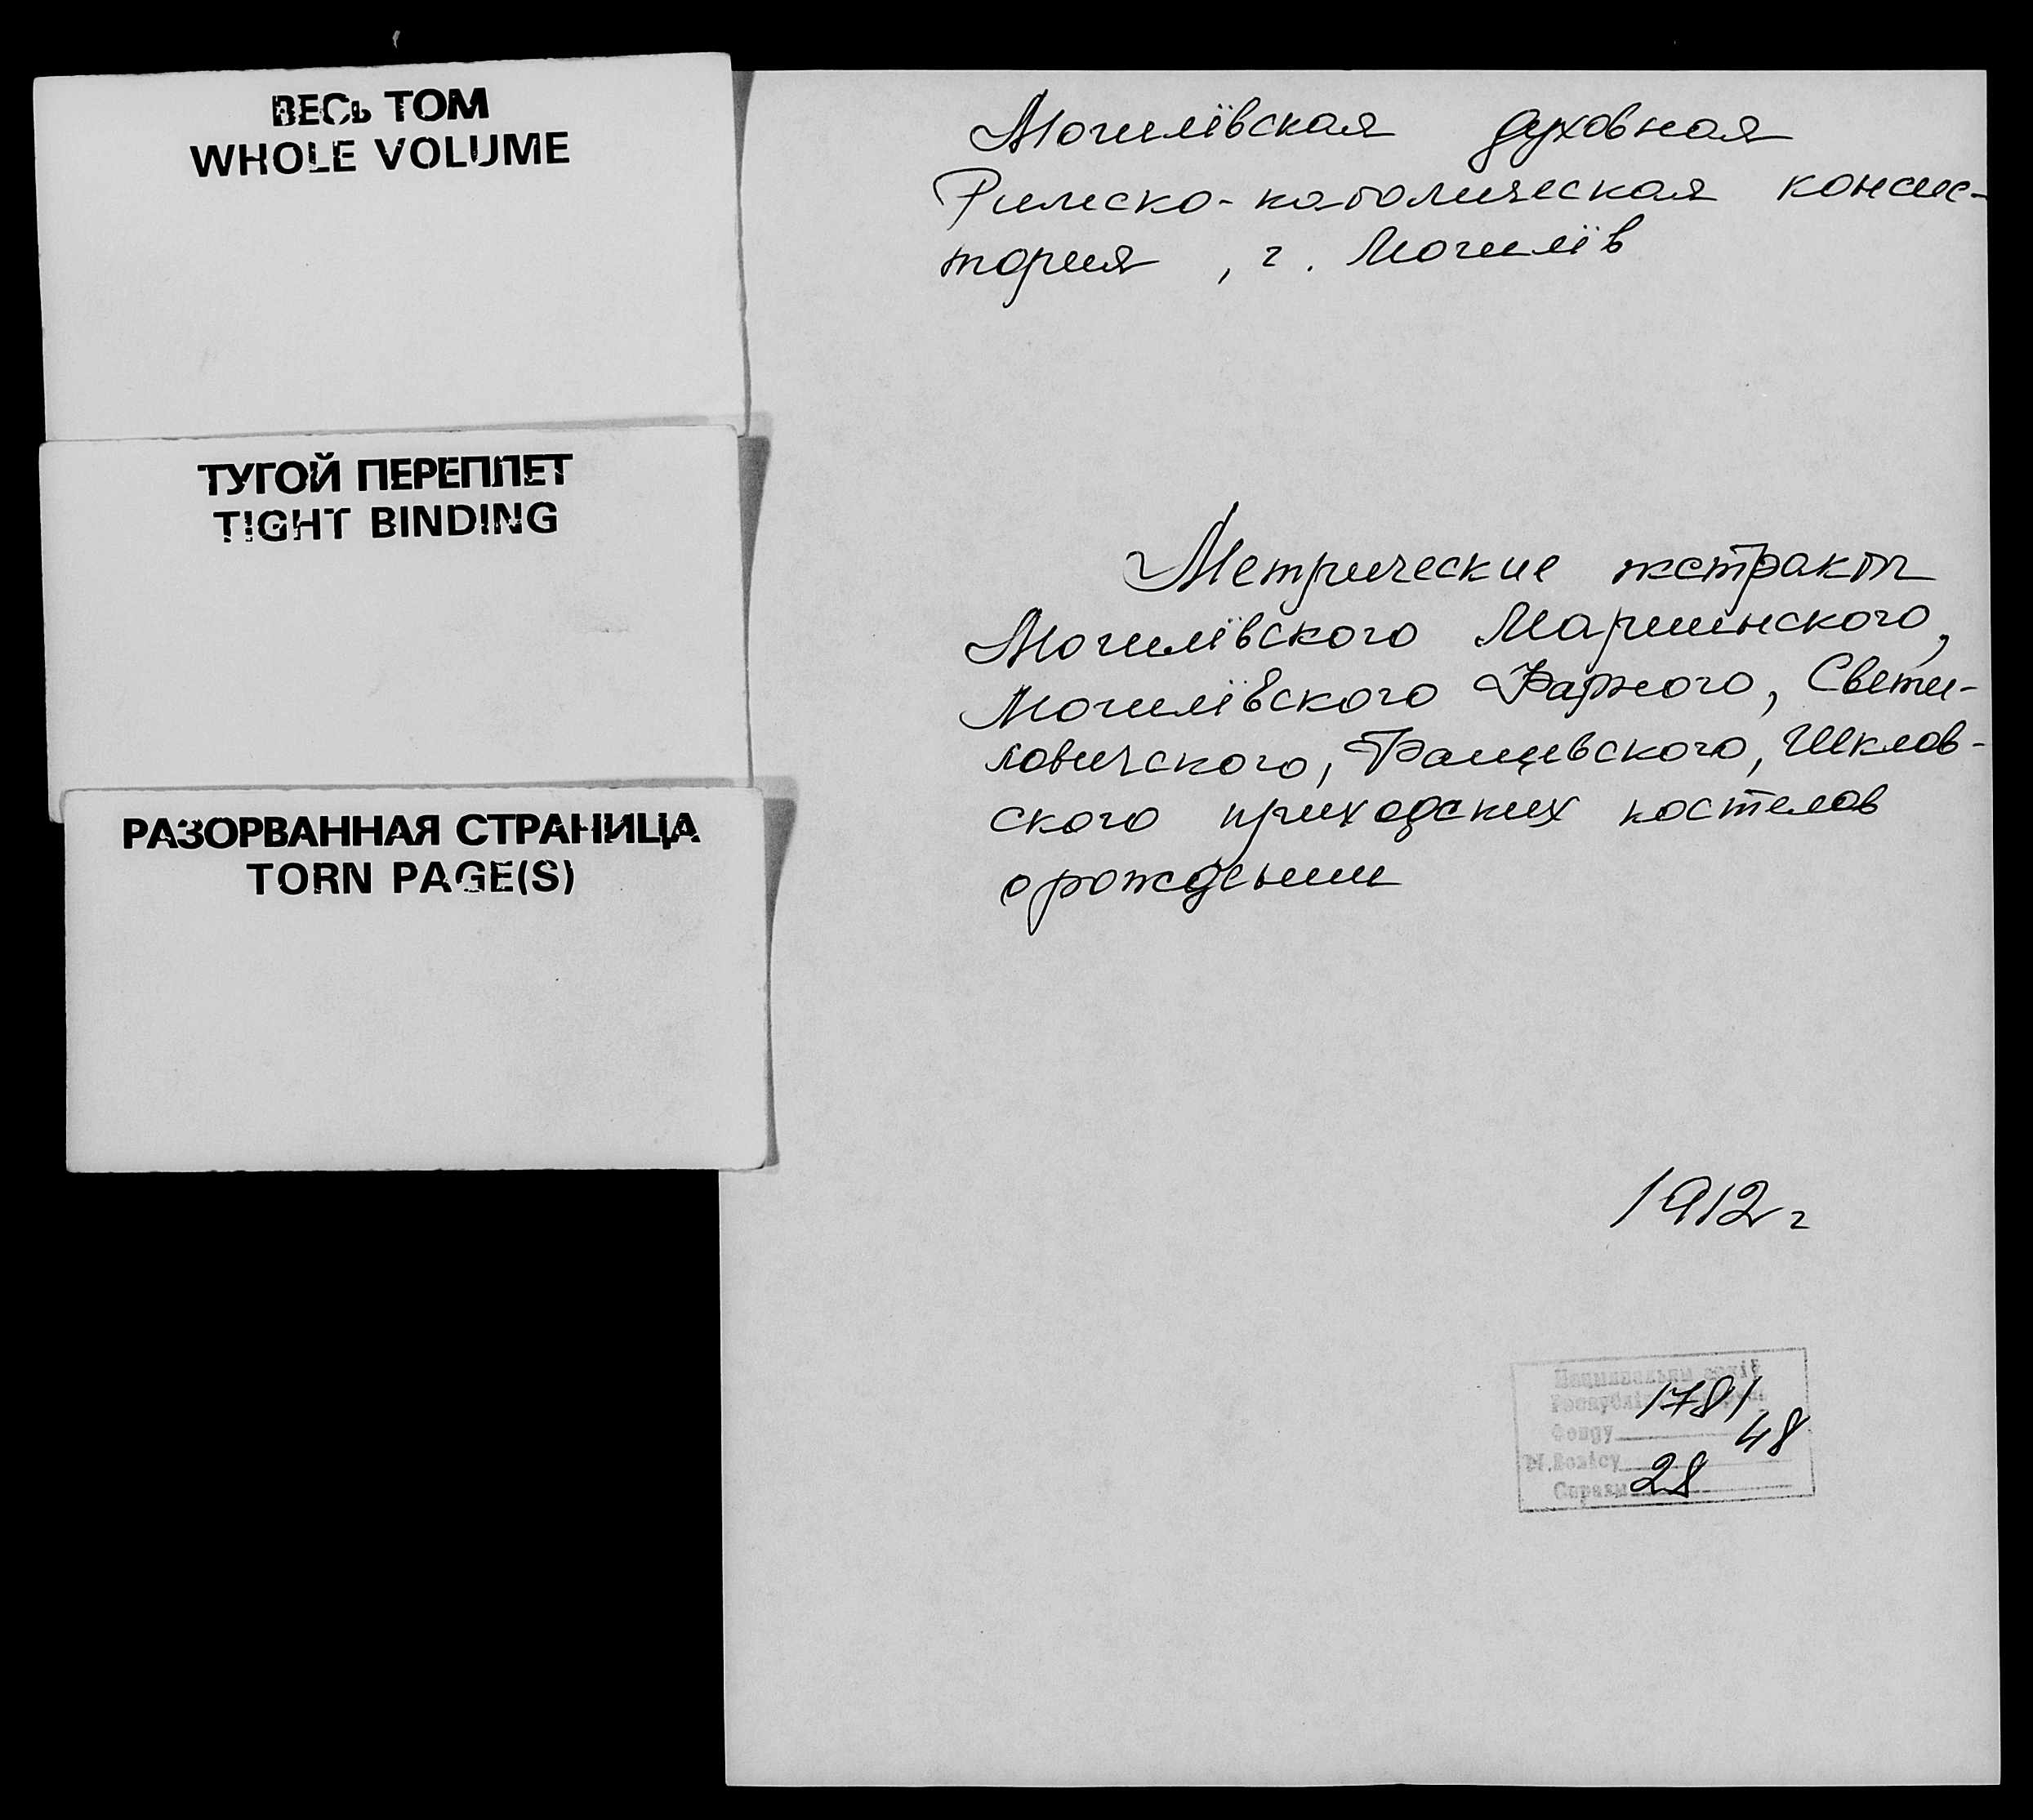 ВЕСЬ ТОМ
WHOLE VOLUME
ТУГОЙ ПЕРЕПЛЕТ
TIGHT BINDING
РАЗОРВАННАЯ СТРАНИЦА
TORN PAGE(S)
Могилёвская духовная
Римско-католическая консис-
тория, г. Могилёв
Метрические экстракты
Могилёвского Мариинского,
Могилёвского Фарного, Свети-
ловичского, Фащевского, Шклов-
ского приходских костелов
о рождении
1912 г
Нацыянальны архіў
Рэспублікі
Фонду 1781
М.Вопісу 48
Справы 28